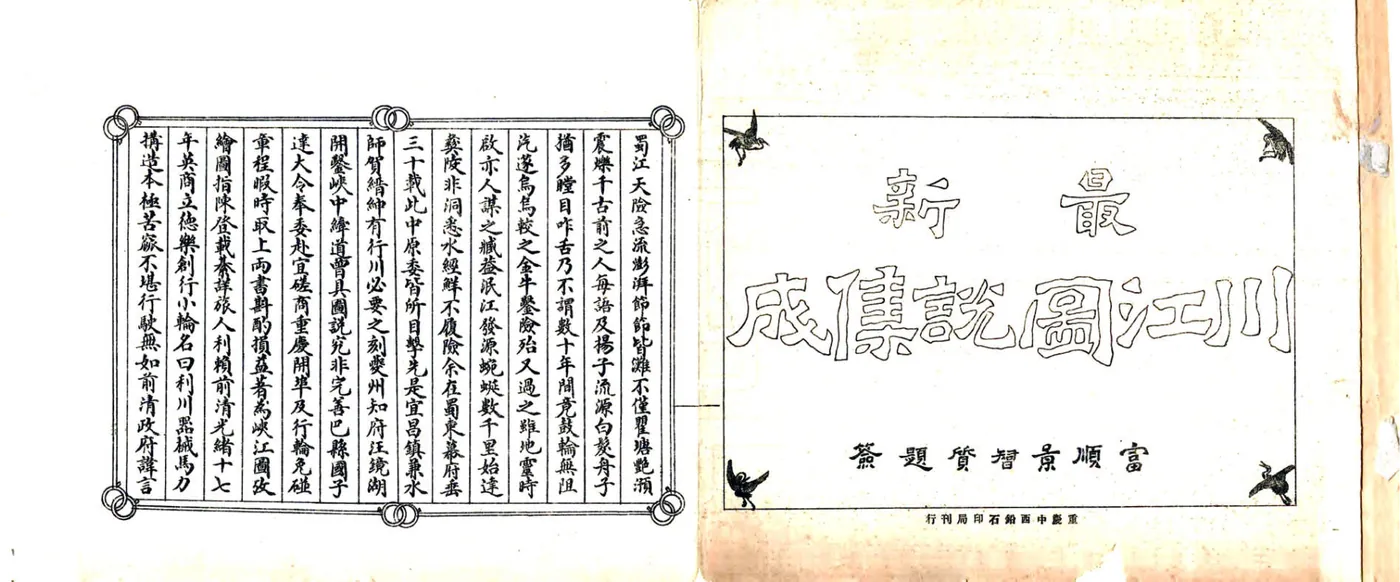 最新
川江圖說集成
富順景習質題簽
重慶中西鉛石印局刊行
蜀江天險急流澎湃節節皆灘不僅瞿塘艷澦
震爍千古前之人每語及揚子流源白髮舟子
猶多瞠目咋舌乃不謂數十年間竟鼓輪無阻
汽遂烏烏較之金牛鑿險殆又過之雖地靈時
啟亦人謀之臧益岷江發源蜿蜒數千里始達
夔陵非洞悉水經鮮不履險余在蜀東幕府垂
三十載此中原委皆所目擊先是宜昌鎮兼水
師賀縉紳有行川必要之刻夔州知府汪鏡湖
開鑿峽中縴道曾具圖說究非完善巴縣國子
達大令奉委赴宜磋商重慶開埠及行輪免碰
章程暇時取上兩書斟酌損益著為峽江圖攷
繪圖指陳登載綦詳旅人利賴前清光緒十七
年英商立德樂創行小輪名曰利川器械馬力
構造本極苦窳不堪行駛無如前清政府諱言